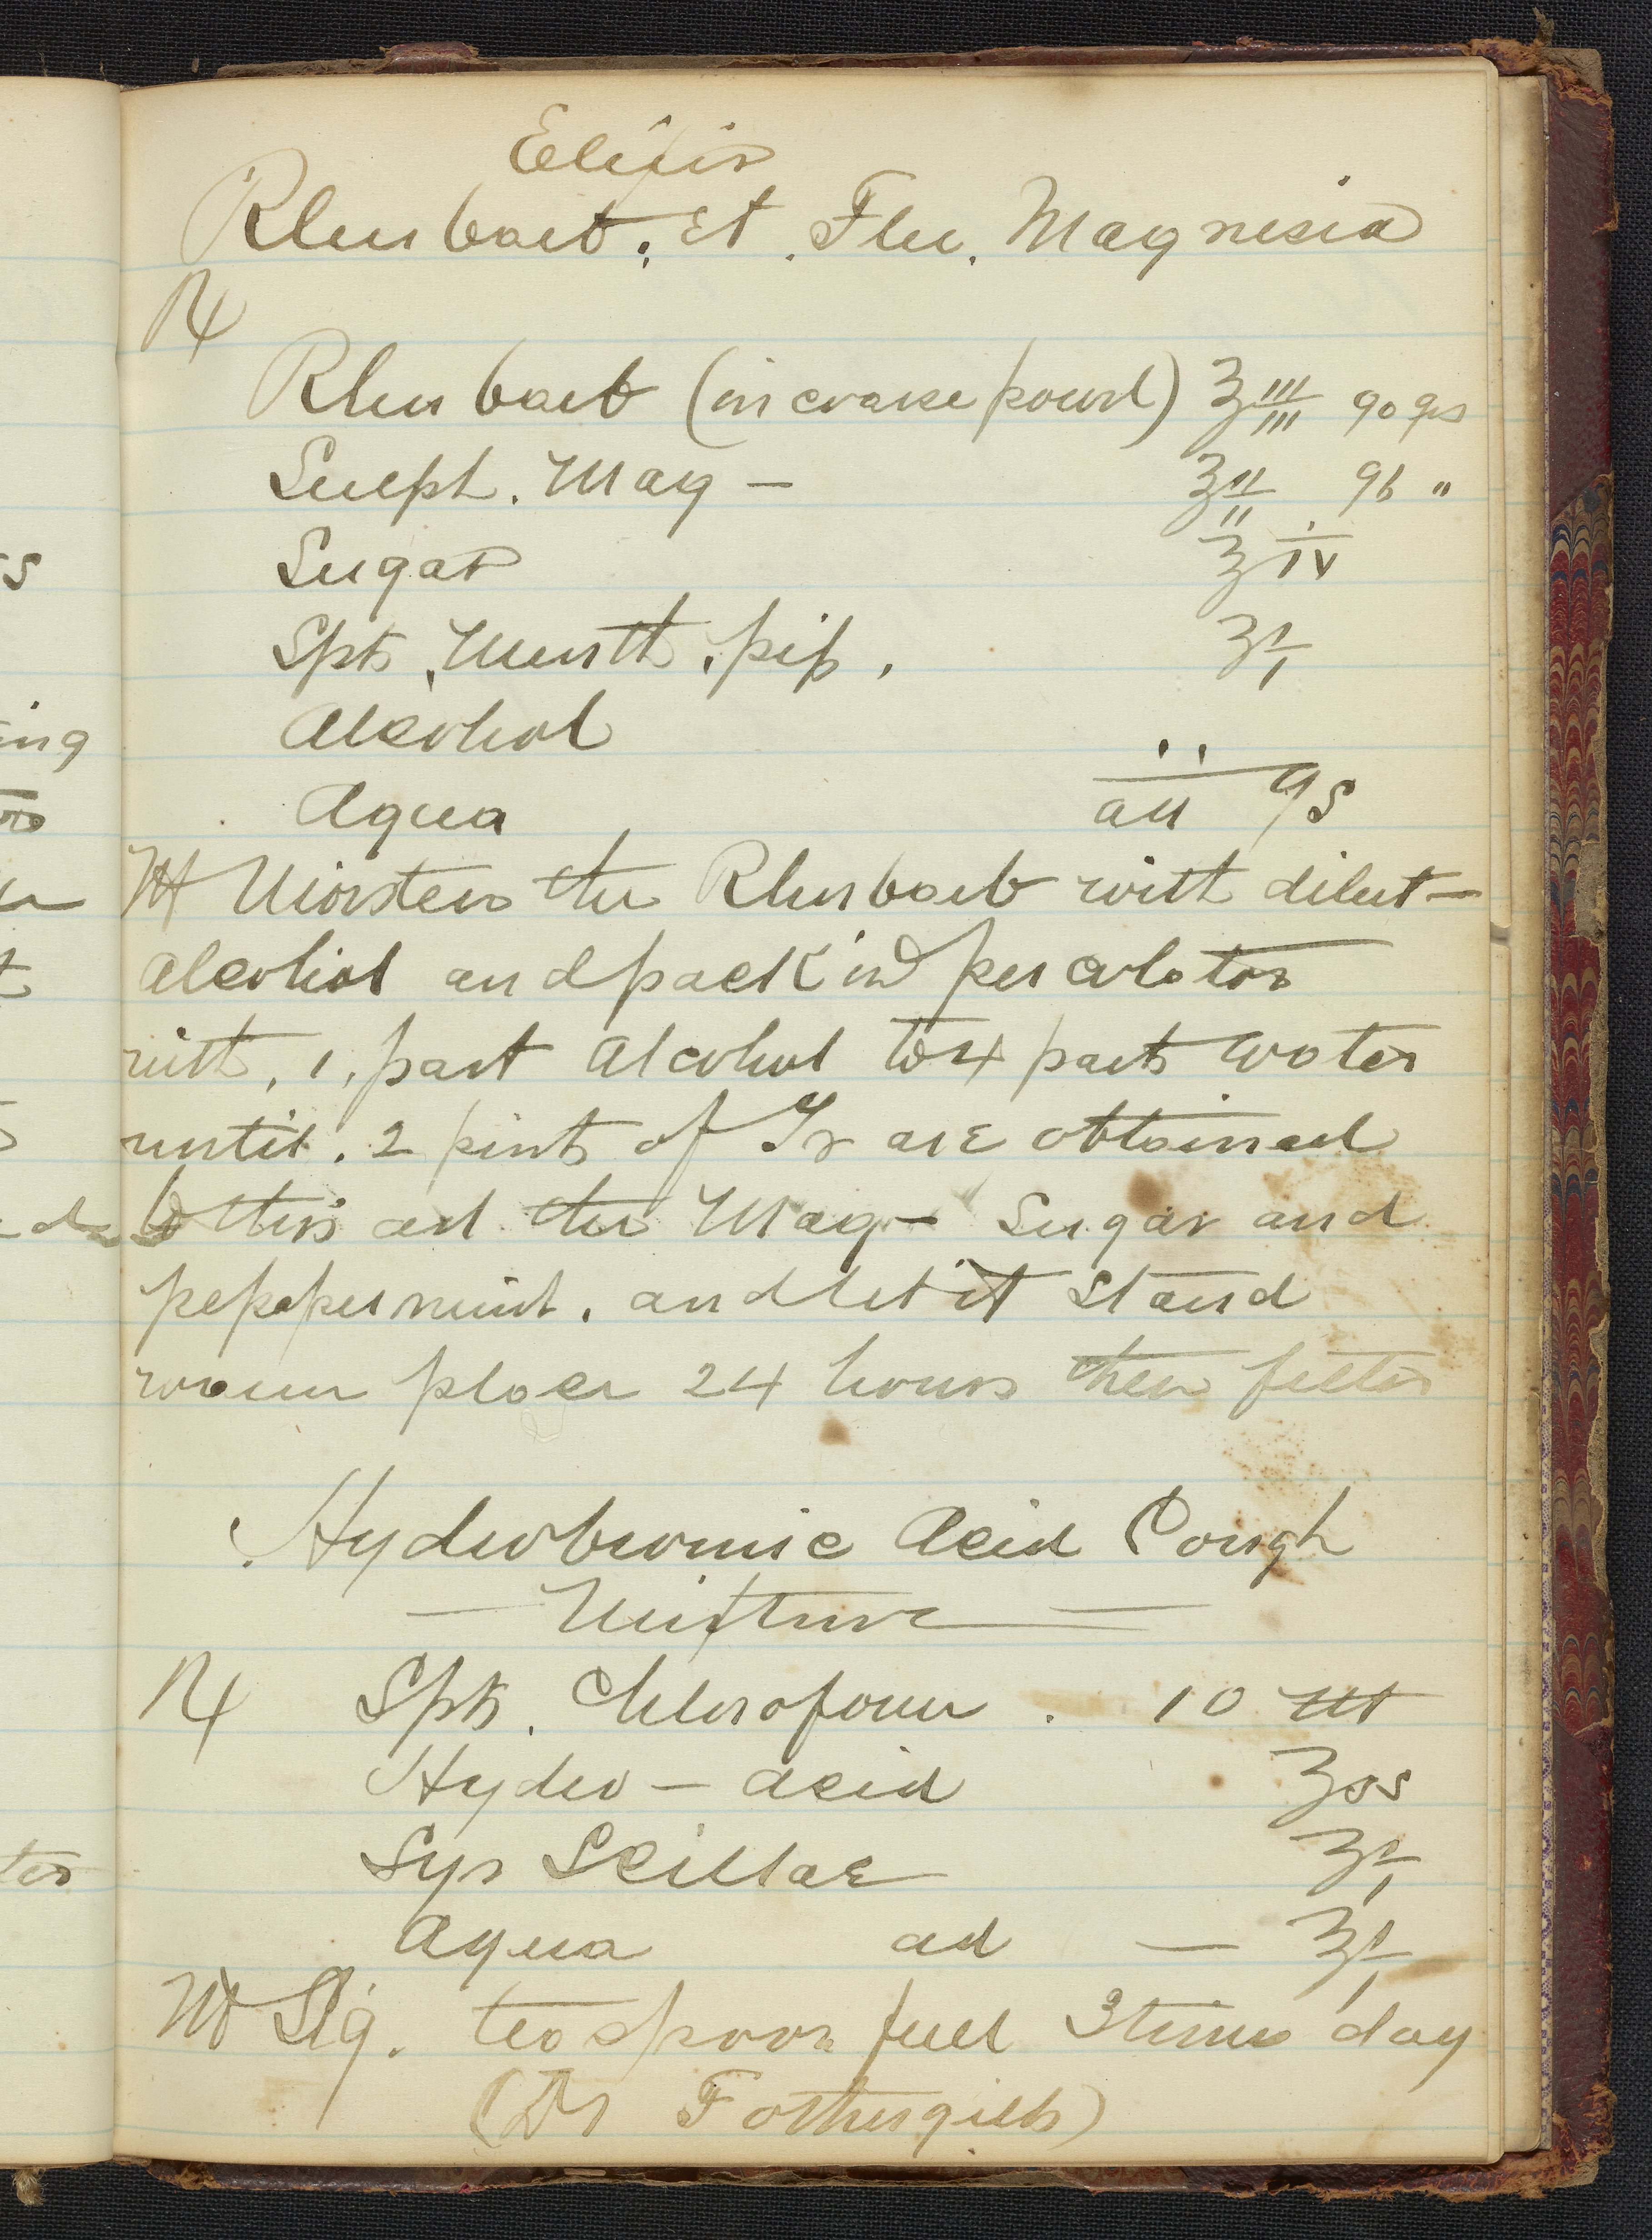 Elixir
Rhubarb. et. Flu. Magnesia
℞
Rhubarb (in coarse powd) ℥iii 90 grs
Sulph. Mag — ℥ii 96 "
Sugar ℥iv
Spts. Menth. pip. ℥i
Alcohol
Aqua aa qs
M Moisten the Rhubarb with dilut —
alcohol and pack in percolator
with, 1, part alcohol to 4 parts water
until. 2 pints of Tr are obtained
to this ad the Mag — Sugar and
peppermint. and let it stand
warm place 24 hours then filter
Hydrobromic Acid Cough
— Mixture —
℞ Spts. Chloroform. 10 ♏
Hydro — acid ʒss
Syr Scillae ʒi
Aqua ad — ℥i
M Sig. teaspoon full 3 times day
(Dr Fothergills)
ss
ing
t
ter